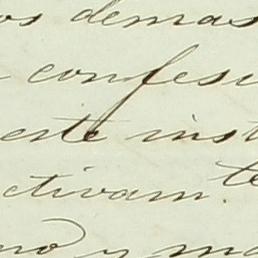 os demas
confesi
este inst
ctivam.te
no y ma